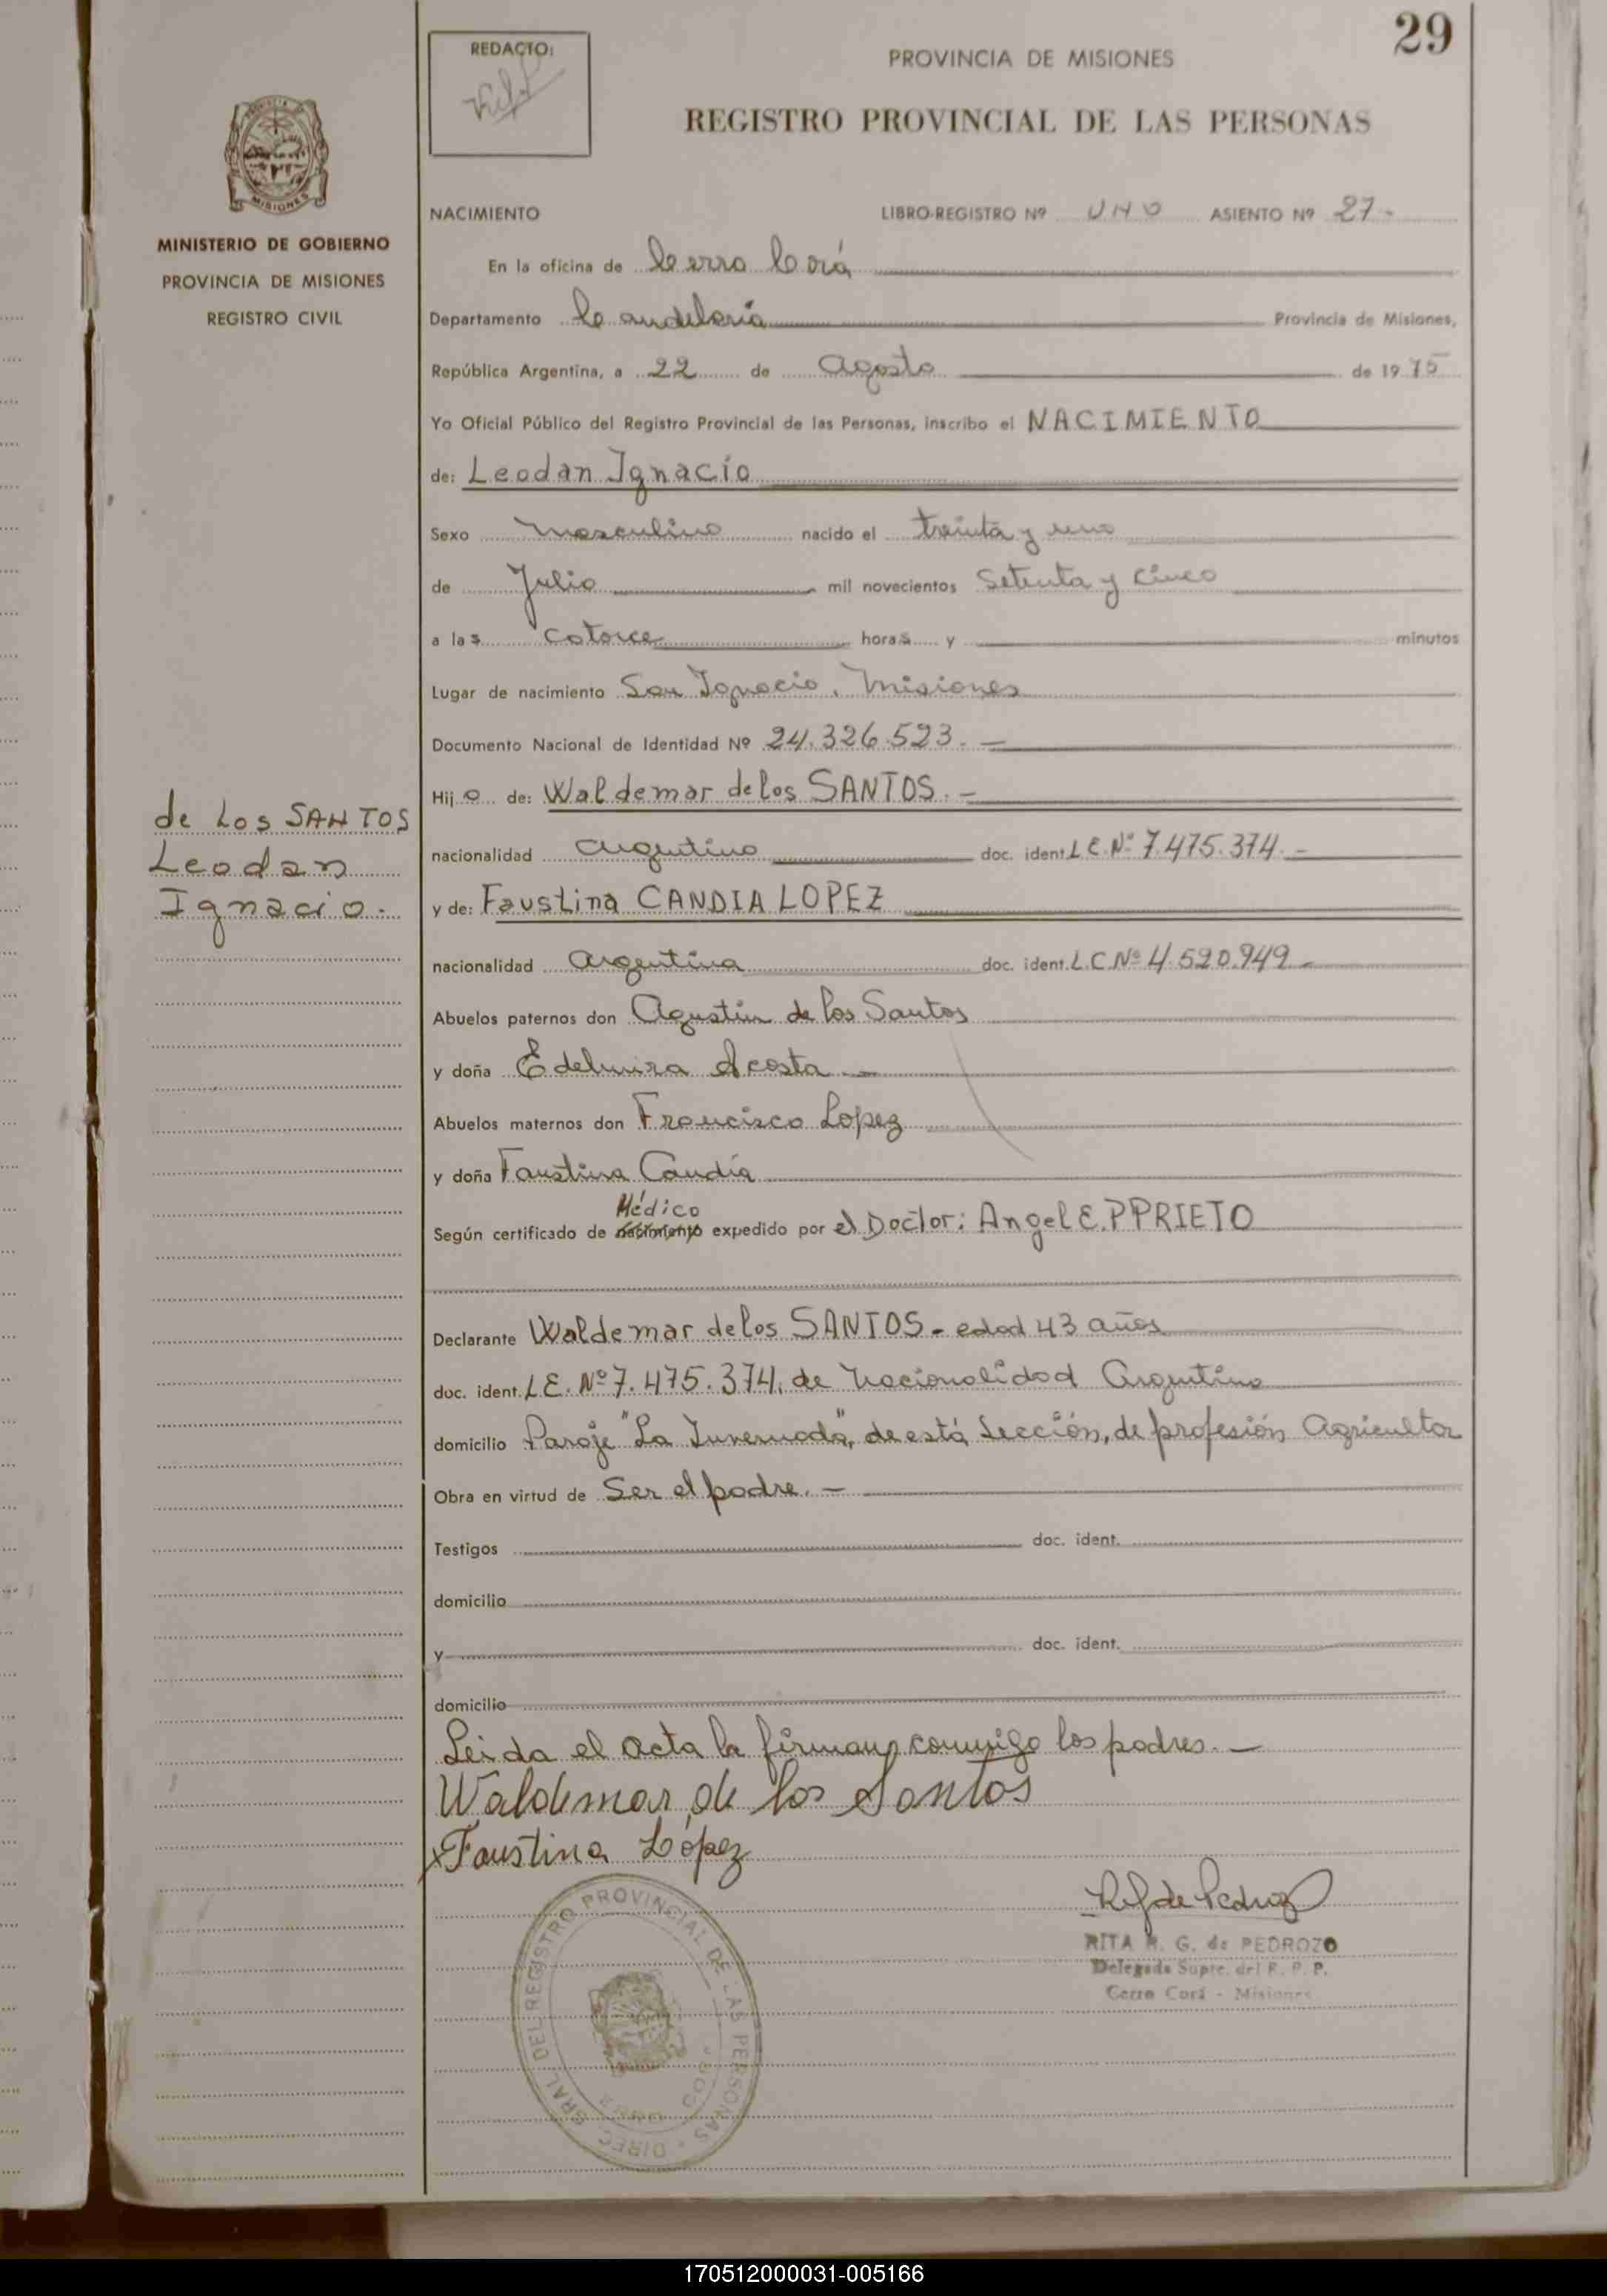 29
REDACTO:
PROVINCIA DE MISIONES
REGISTRO PROVINCIAL DE LAS PERSONAS
MISIONES
MINISTERIO DE GOBIERNO
PROVINCIA DE MISIONES
REGISTRO CIVIL
NACIMIENTO LIBRO-REGISTRO Nº UNO ASIENTO Nº 27-
En la oficina de Cerro Corá
Departamento Candelaria Provincia de Misiones,
República Argentina, a 22 de Agosto de 1975
Yo Oficial Público del Registro Provincial de las Personas, inscribo el NACIMIENTO
de: Leodan Ignacio
Sexo Masculino nacido el treinta y uno
de Julio mil novecientos Setenta y cinco
a las catorce horas y minutos
Lugar de nacimiento San Ignacio, Misiones
Documento Nacional de Identidad Nº 24.326.523.-
Hijo de: Waldemar de los SANTOS.-
de Los SANTOS
Leodan
Ignacio.
nacionalidad Argentino doc. ident. L.E. Nº 7.475.374.-
y de: Faustina CANDIA LOPEZ
nacionalidad Argentina doc. ident. L.C. Nº 4.520.949-
Abuelos paternos don Agustin de los Santos
y doña Edelmira Acosta.-
Abuelos maternos don Francisco Lopez
y doña Faustina Candia
Médico
Según certificado de nacimiento expedido por el Doctor: Angel E. PPRIETO
Declarante Waldemar de los SANTOS - edad 43 años
doc. ident. L.E. Nº 7.475.374, de nacionalidad Argentino
domicilio Paraje "La Invernada", de está Sección, de profesión Agricultor
Obra en virtud de Ser el padre.-
Testigos doc. ident.
domicilio
y doc. ident.
domicilio
Leida el acta la firman conmigo los padres.-
Waldemar de los Santos
x Faustina López
RITA R. G. de PEDROZO
Delegada Supte. del R. P. P.
Cerro Corá - Misiones
DIREC. GRAL DEL REGISTRO PROVINCIAL DE LAS PERSONAS
170512000031-005166